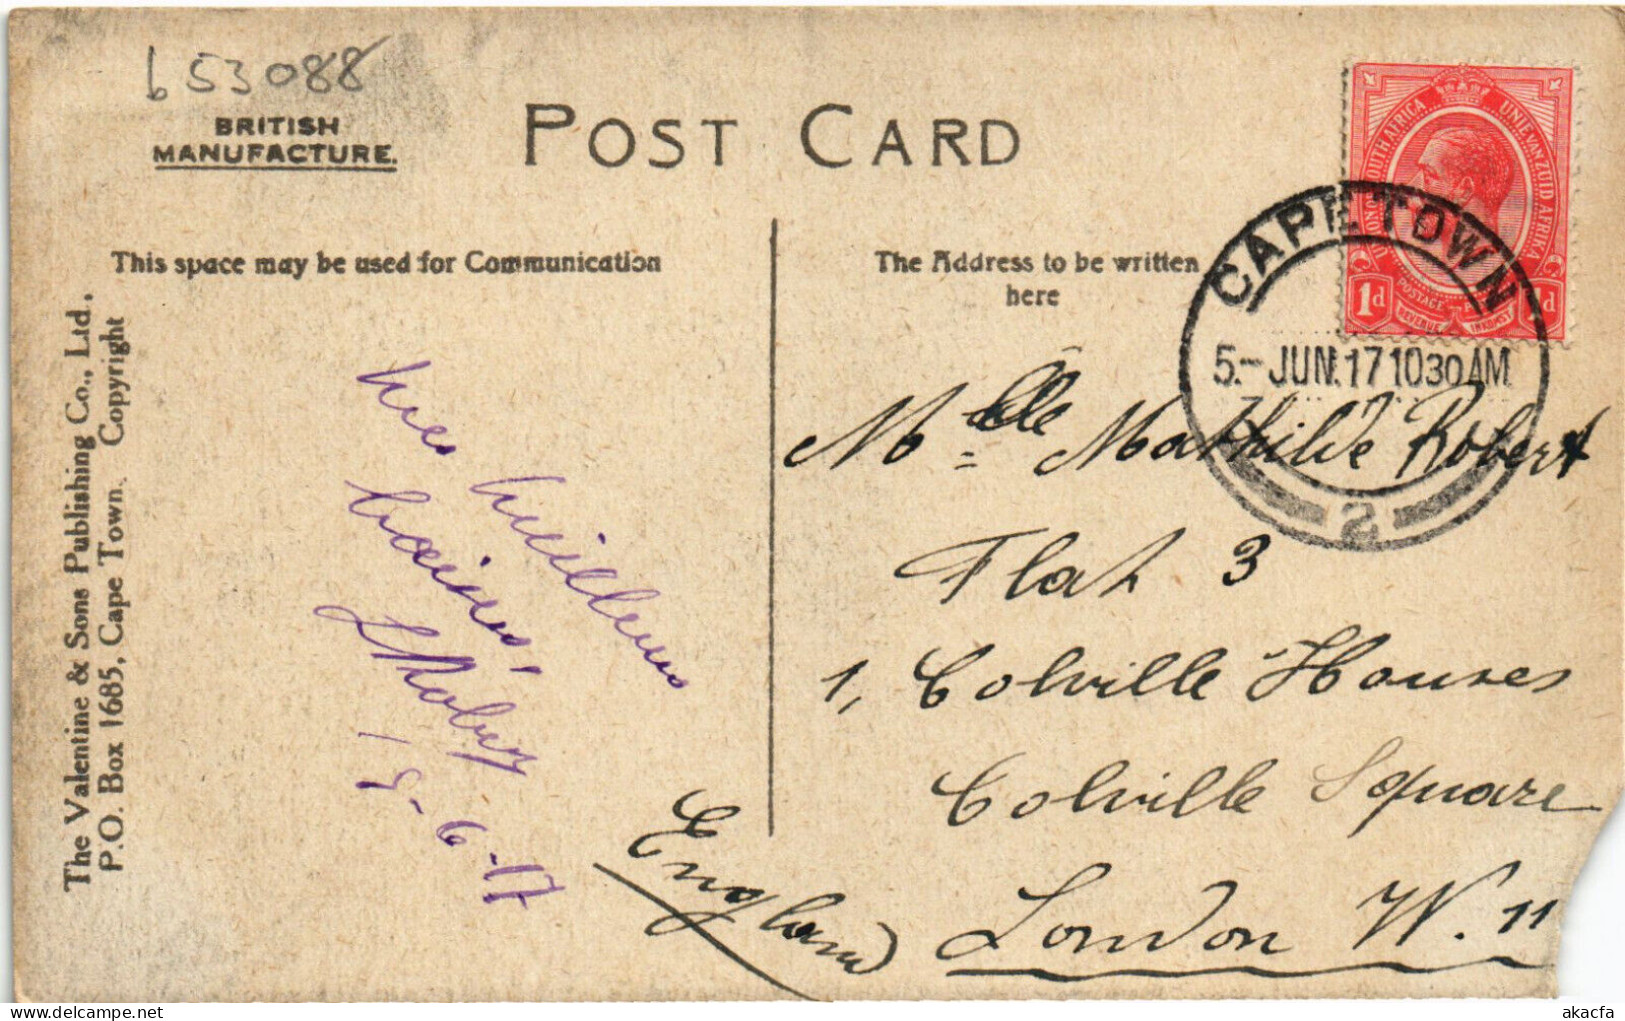 653088
BRITISH
MANUFACTURE.
POST CARD
This space may be used for Communication
The Address to be written
here
The Valentine & Sons Publishing Co., Ltd.,
P.O. Box 1685, Cape Town. Copyright
UNION OF SOUTH AFRICA UNIE VAN ZUID AFRIKA
1d POSTAGE 1d
REVENUE INKOMST
CAPE TOWN
5.- JUN.17 1030AM
2
Mes meilleurs
baisers,
5-6-17
Mlle Mathilde Robert
Flat 3
1, Colville Houses
Colville Square
London W. 11
England
akacfa